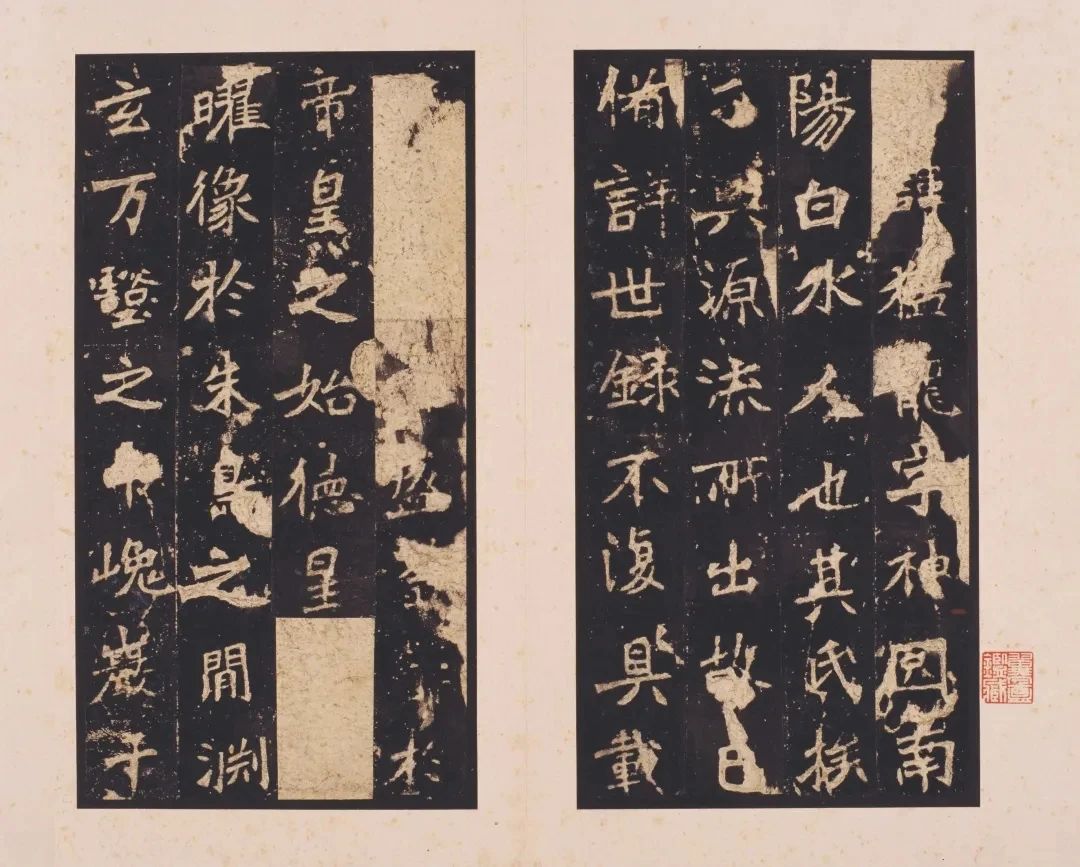 諱猛龍字神囧南
陽白水人也其氏族
源流所出故
備詳世錄不復具載
盛於
帝皇之始德星
曜像於朱鳥之間淵
玄万壑之中巉巖千